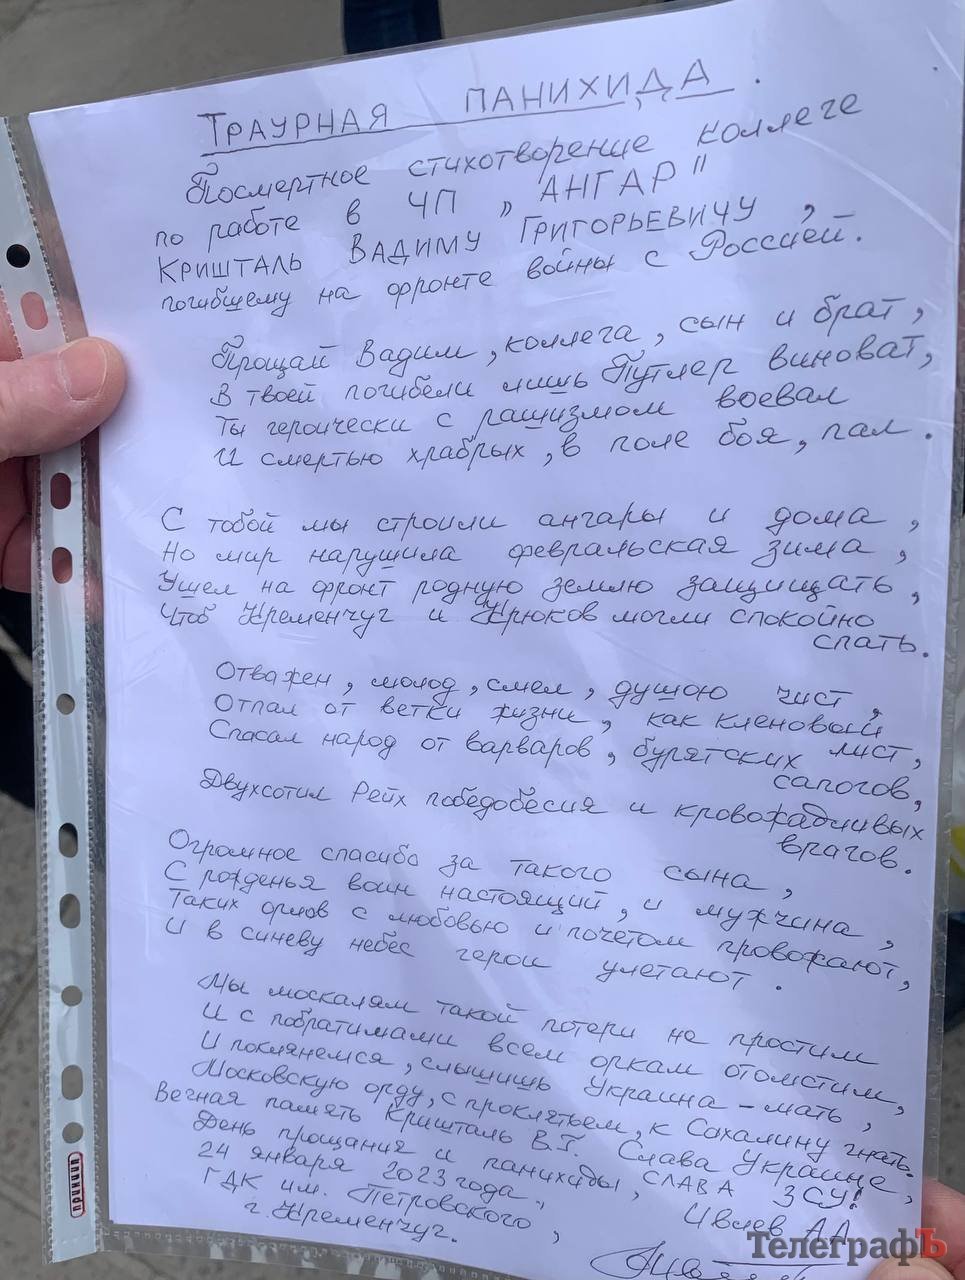 ТРАУРНАЯ ПАНИХИДА.
Посмертное стихотворение коллеге
по работе в ЧП „АНГАР"
КРИШТАЛЬ ВАДИМУ ГРИГОРЬЕВИЧУ,
погибшему на фронте войны с Россией.
Прощай Вадим, коллега, сын и брат,
В твоей погибели лишь Путлер виноват,
Ты героически с рашизмом воевал
И смертью храбрых, в поле боя, пал.
С тобой мы строили ангары и дома,
Но мир нарушила февральская зима,
Ушел на фронт родную землю защищать,
Чтоб Кременчуг и Крюков могли спокойно
спать.
Отважен, молод, смел, душою чист,
Отпал от ветки жизни, как кленовый
лист,
Спасал народ от варваров, бурятских
сапогов,
Двухсотил Рейх победобесия и кровожадчивых
врагов.
Огромное спасибо за такого сына,
С рожденья воин настоящий, и мужчина,
Таких орлов с любовью и почетом провожают,
И в синеву небес герои улетают.
Мы москалям такой потери не простим
И с побратимами всем оркам отомстим,
И поклянемся, слышишь Украина-мать,
Московскую орду, с проклятьем, к Сахалину гнать.
Вечная память Кришталь В.Г. Слава Украине,
День прощания и панихиды, СЛАВА ЗСУ!
24 января 2023 года,
ГДК им. Петровского,
г. Кременчуг.
А.А.
ТелеграфЪ